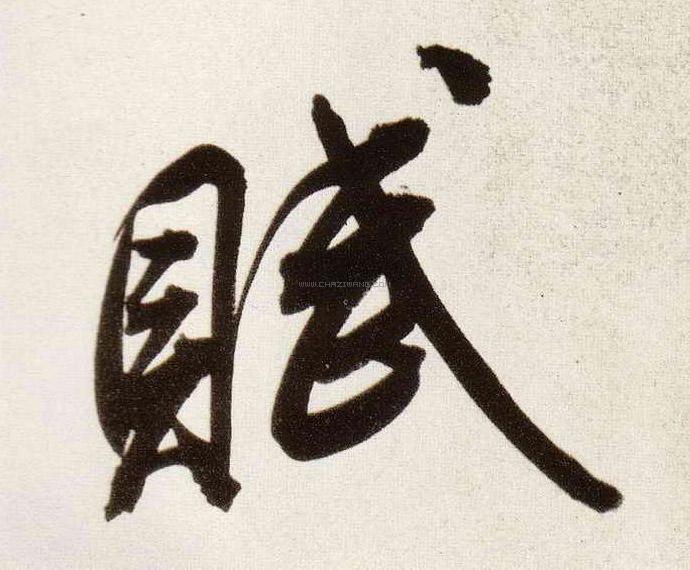 賦
WWW.CHAZIWANG.COM